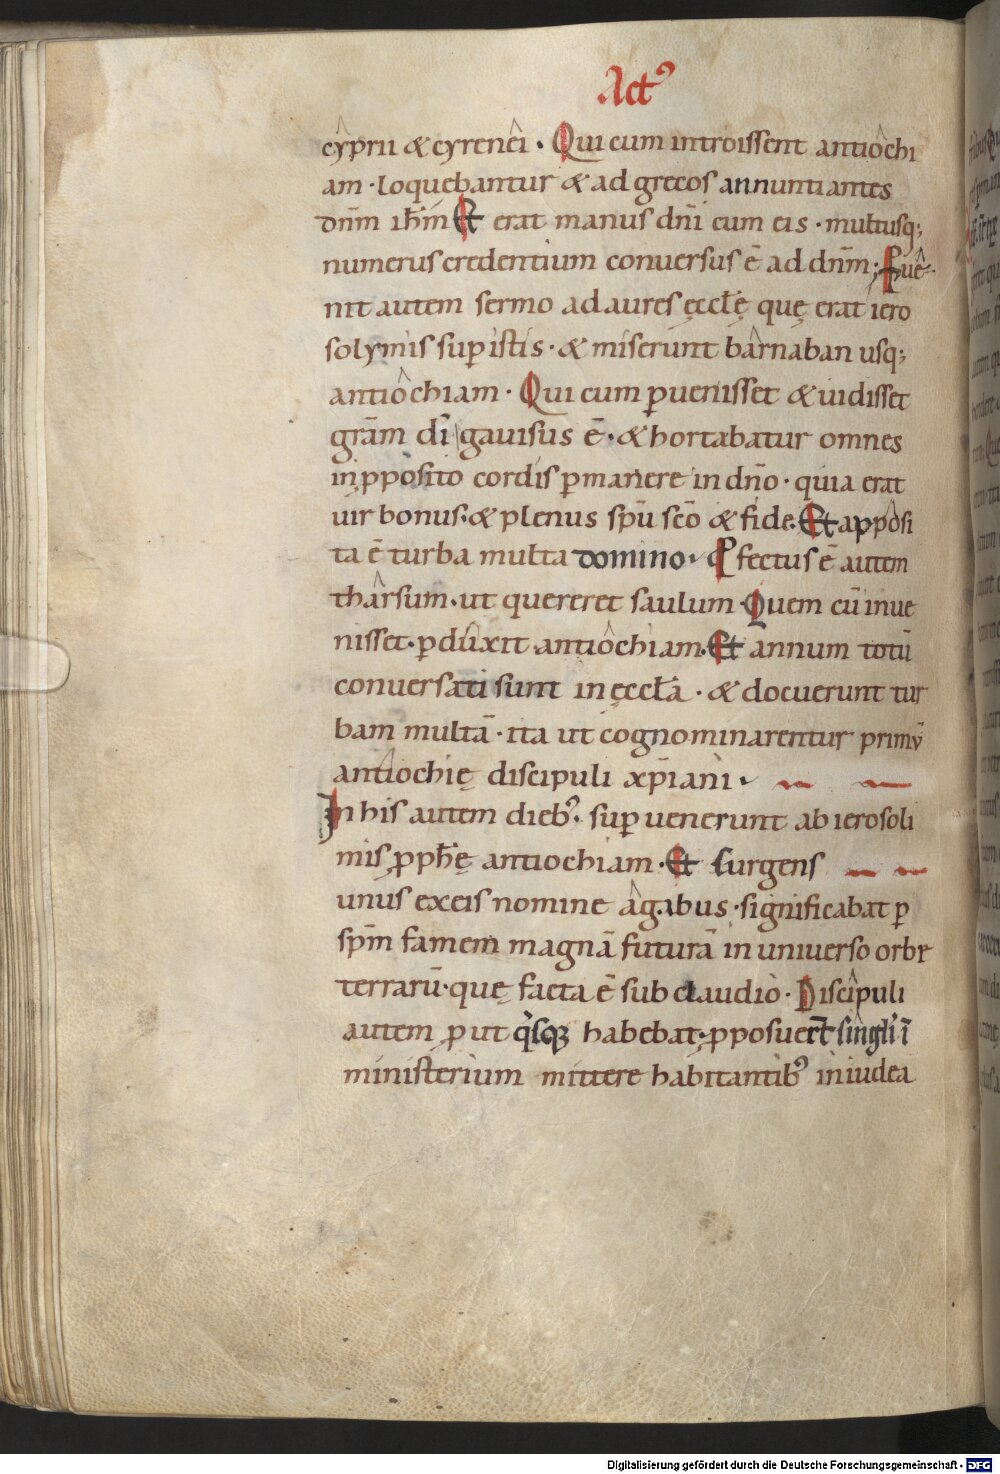 Actꝰ
cyprii & cyrenei · Qui cum introissent antiochi
am · loquebantur & ad grecos annuntiantes
dnm̄ ihm̄ Et erat manus dnī cum eis · multusq;
numerus credentium conuersus ē ad dnm̄ · Puē
nit autem sermo ad aures ęcclę̄ quę erat iero
solymis suꝑ istis · & miserunt barnaban usq;
antiochiam · Qui cum ꝑuenisset & uidisset
grām dī gauisus ē · & hortabatur omnes
in ꝓposito cordis ꝑmanere in dnō · quia erat
uir bonus · & plenus spū scō & fide · Et apposi
ta ē turba multa domino · Ꝓfectus ē autem
tharsum · ut quereret saulum · Quem cū inue
nisset · ꝑduxit antiochiam · Et annum totū
conuersati sunt in ęcclā · & docuerunt tur
bam multā · ita ut cognominarentur primū
antiochię discipuli xp̄iani ·
In his autem diebꝰ · suꝑuenerunt ab ierosoli
mis ꝓphę̄ antiochiam · Et surgens
unus ex eis nomine agabus · significabat ꝑ
spm̄ famem magnā futurā in uniuerso orbe
terrarū · quę facta ē sub claudio · Discipuli
autem ꝓut qisqꝫ habebat · ꝓposuert̄ singli ī
ministerium mittere habitantibꝰ in iudea
Digitalisierung gefördert durch die Deutsche Forschungsgemeinschaft - DFG